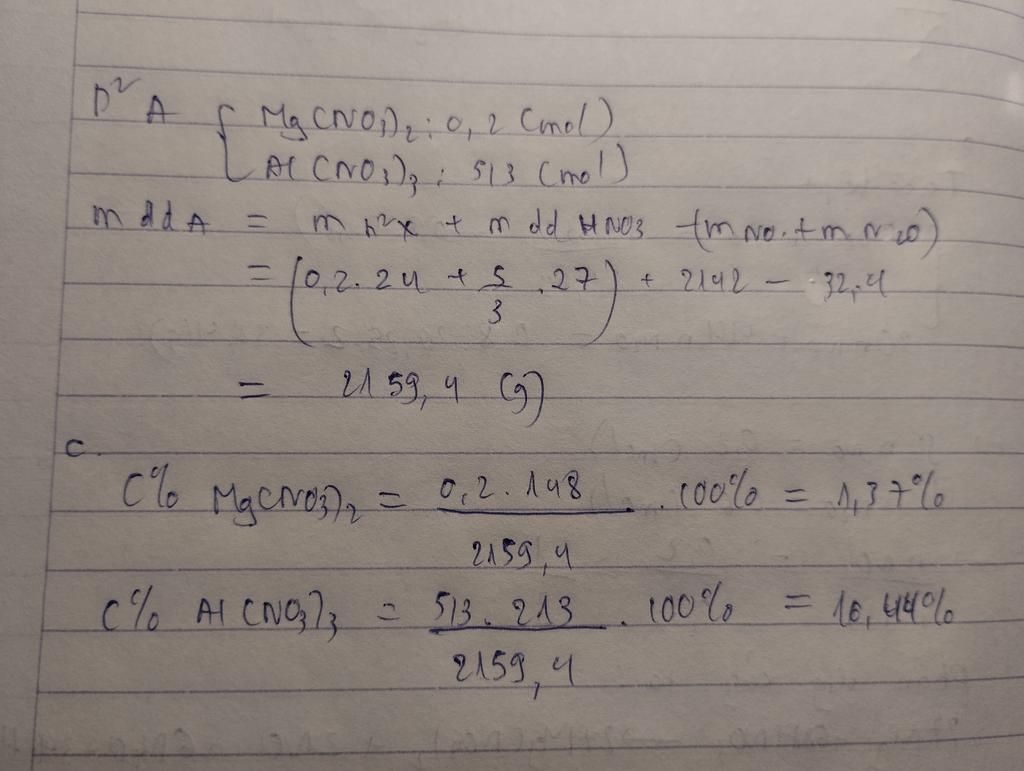 D² A { Mg(NO3)2 : 0,2 (mol)
Al(NO3)3 : 5/3 (mol)
m dd A = m h²X + m dd HNO3 - (m NO + m N2O)
= (0,2 . 24 + 5/3 . 27) + 2142 - 32,4
= 2159,4 (g)
c.
C% Mg(NO3)2 = 0,2 . 148 / 2159,4 . 100% = 1,37%
C% Al(NO3)3 = 5/3 . 213 / 2159,4 . 100% = 16,44%